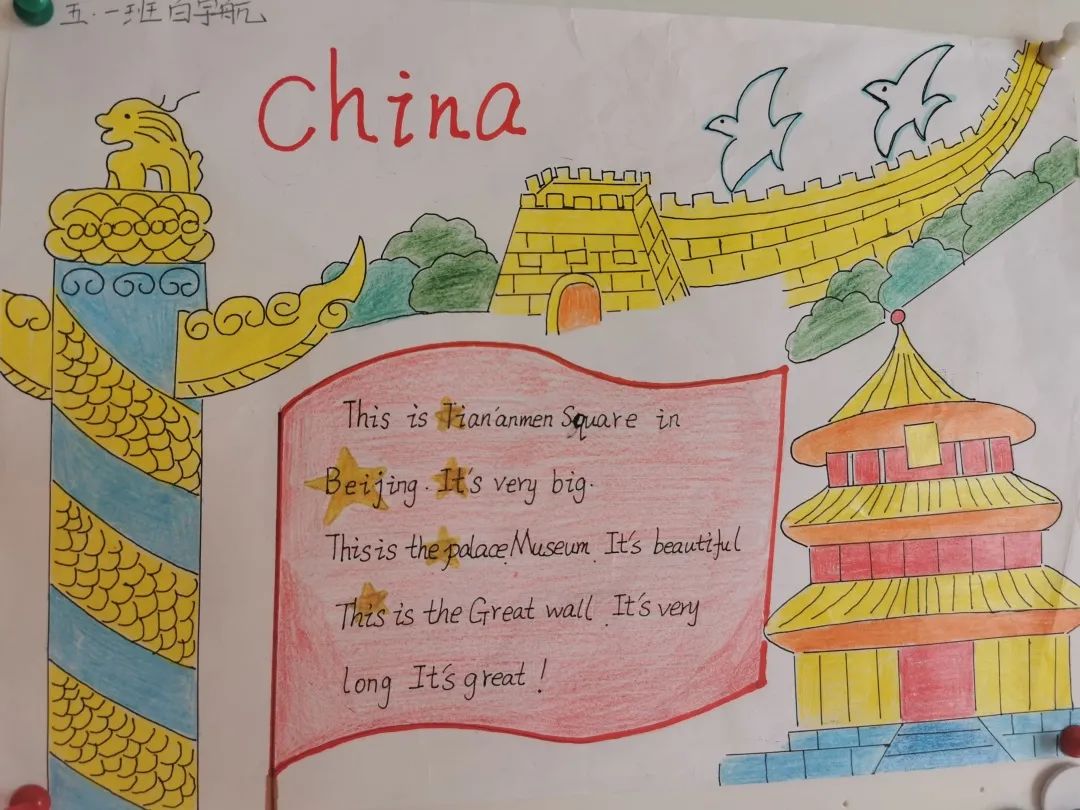 五.一班白宇航
China
This is Tian'anmen Square in
Beijing. It's very big.
This is the palace Museum. It's beautiful
This is the Great wall. It's very
long It's great!